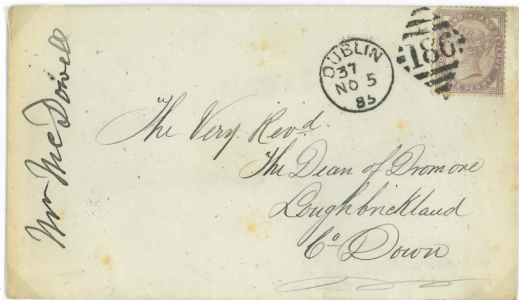 Mrs McDowell
DUBLIN
37
NO 5
85
186
The Very Revd.
The Dean of Dromore
Loughbrickland
Co Down